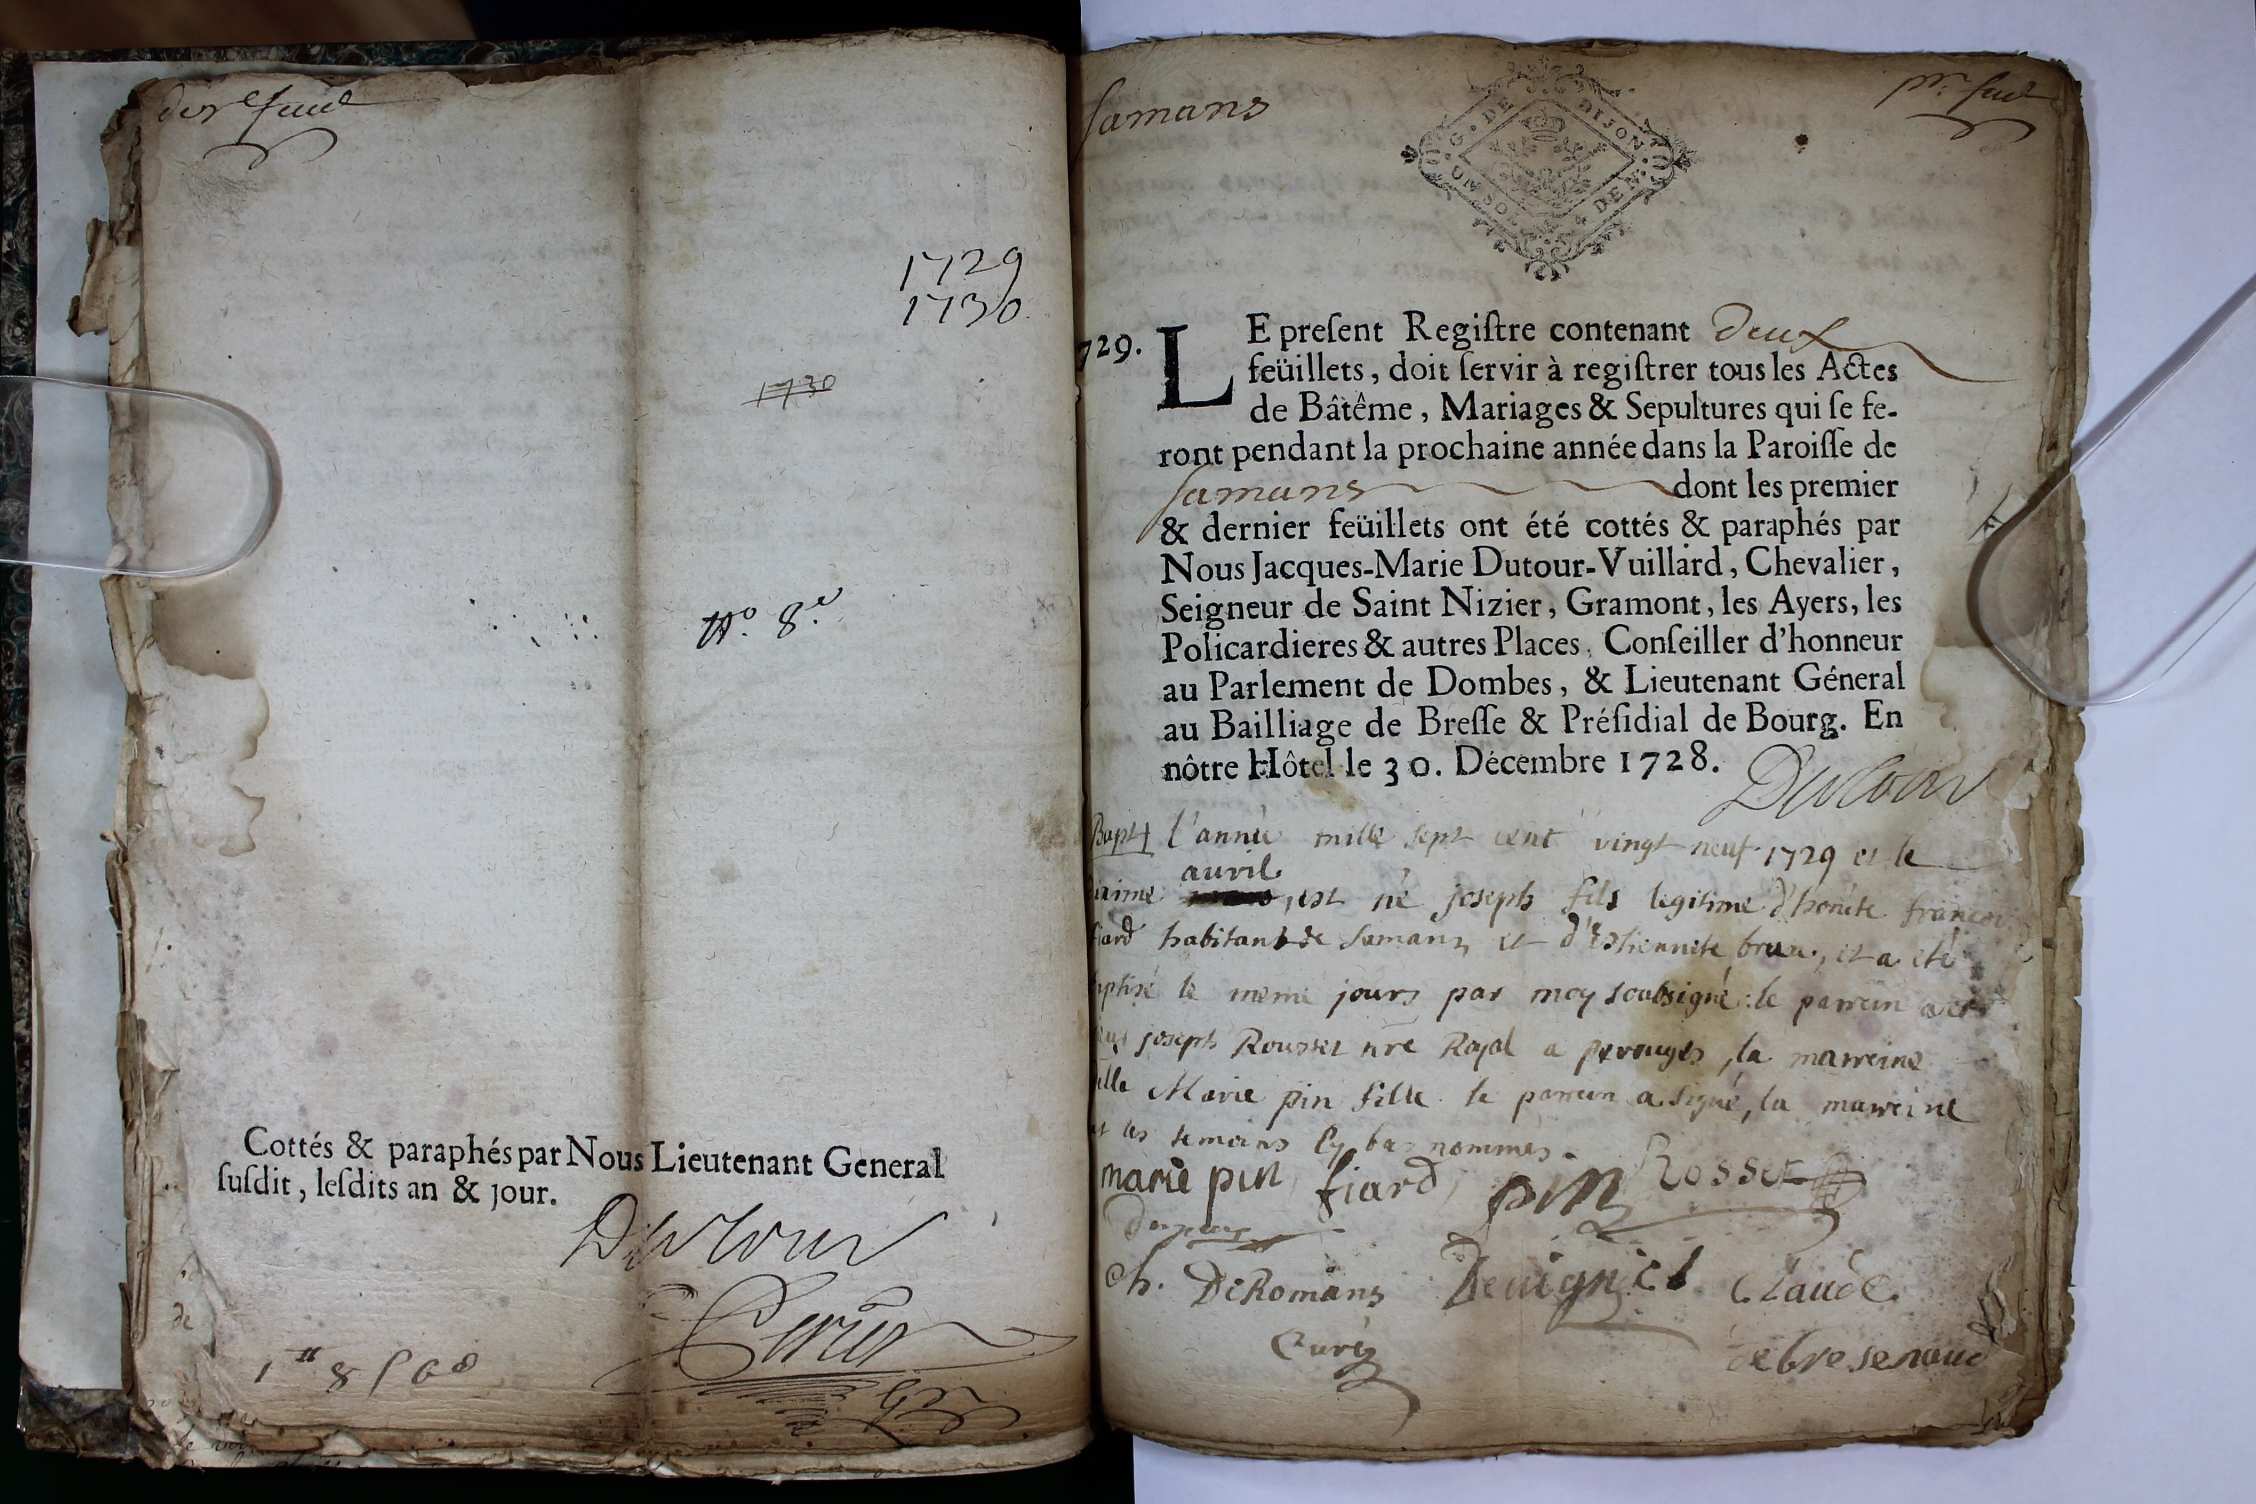 der.e feuil
1729
1730
1730
No. 8.e
Cottés & paraphés par Nous Lieutenant General
susdit, lesdits an & jour.
Dutour
1 8
Samans
pr. feuil
G. DE DIJON
UN SOL DEN.
1729.
LE present Registre contenant deux
feüillets, doit servir à registrer tous les Actes
de Bâtême, Mariages & Sepultures qui se fe-
ront pendant la prochaine année dans la Paroisse de
Samans dont les premier
& dernier feüillets ont été cottés & paraphés par
Nous Jacques-Marie Dutour-Vuillard, Chevalier,
Seigneur de Saint Nizier, Gramont, les Ayers, les
Policardieres & autres Places, Conseiller d'honneur
au Parlement de Dombes, & Lieutenant Géneral
au Bailliage de Bresse & Présidial de Bourg. En
nôtre Hôtel le 30. Décembre 1728.
Dutour
Bapt l'année mille sept cent vingt neuf 1729 et le
avril
est né joseph fils legitime d'honête francoi
fiard habitant de Samans et d'Estiennete brun, et a eté
baptisé le meme jours par moy soubsigné: le parrein a eté
joseph Rousset nre Royal a perouges, la marreine
Marie pin fille le parrein a signé, la marreine
et les temoins cy bas nommes.
marie pin fiard pin Rosset
Ch. DeRomans Deuignet Claude
Curé debresenoud